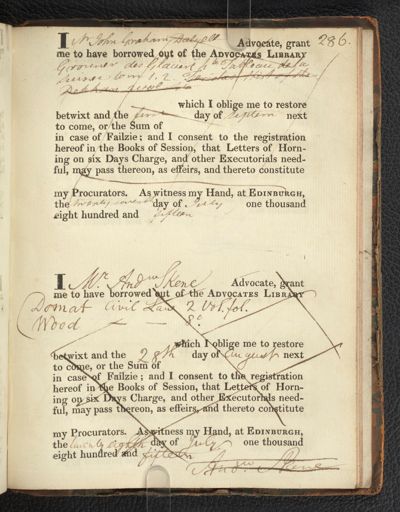 286.
I Mr John Graham Dalyell Advocate, grant
me to have borrowed out of the ADVOCATES LIBRARY
Grouner des Glacieres Tableau de la
Suisse tom 1. 2.
which I oblige me to restore
betwixt and the first day of Septem next
to come, or the Sum of
in case of Failzie; and I consent to the registration
hereof in the Books of Session, that Letters of Horn-
ing on six Days Charge, and other Executorials need-
ful, may pass thereon, as effeirs, and thereto constitute
my Procurators. As witness my Hand, at EDINBURGH,
the twenty seventh day of July one thousand
eight hundred and fifteen
I Mr. Andw Skene Advocate, grant
me to have borrowed out of the ADVOCATES LIBRARY
Domat Civil Law 2 Vol. fol.
Wood — — 8o
which I oblige me to restore
betwixt and the 28th day of August next
to come, or the Sum of
in case of Failzie; and I consent to the registration
hereof in the Books of Session, that Letters of Horn-
ing on six Days Charge, and other Executorials need-
ful, may pass thereon, as effeirs, and thereto constitute
my Procurators. As witness my Hand, at EDINBURGH,
the twenty eighth day of July one thousand
eight hundred and fifteen
Andw Skene